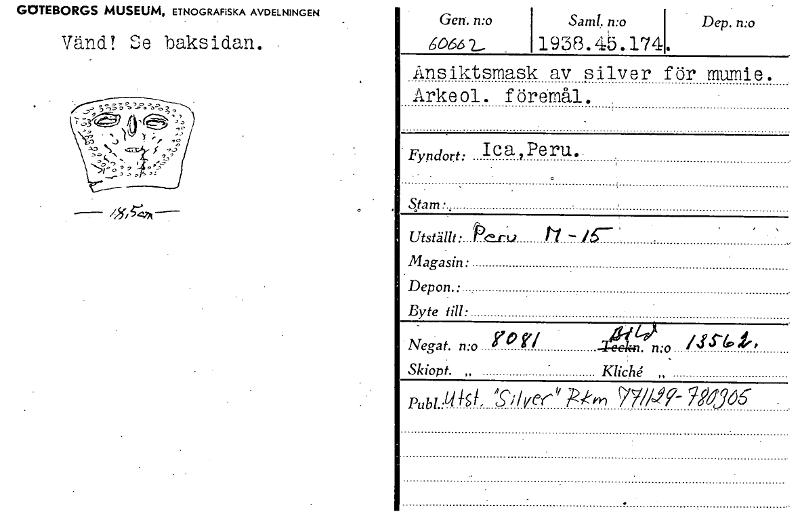 GÖTEBORGS MUSEUM, ETNOGRAFISKA AVDELNINGEN
Vänd! Se baksidan.
18,5cm
Gen. n:o Saml. n:o Dep. n:o
60662 1938.45.174.
Ansiktsmask av silver för mumie.
Arkeol. föremål.
Fyndort: Ica,Peru.
Stam:
Utställt: Peru M-15
Magasin:
Depon.:
Byte till:
Negat. n:o 8081 Bild Teckn. n:o 13562.
Skiopt. „ Kliché „
Publ.: Utst. "Silver" Rkm 771129-780905